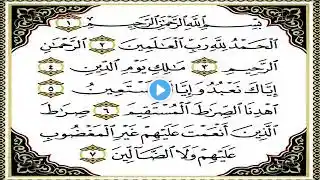 بِسْمِ اللَّهِ الرَّحْمَٰنِ الرَّحِيمِ ١
الْحَمْدُ لِلَّهِ رَبِّ الْعَالَمِينَ ٢ الرَّحْمَٰنِ
الرَّحِيمِ ٣ مَالِكِ يَوْمِ الدِّينِ ٤
إِيَّاكَ نَعْبُدُ وَإِيَّا سْتَعِينُ ٥
اهْدِنَا الصِّرَاطَ الْمُسْتَقِيمَ ٦ صِرَاطَ
الَّذِينَ أَنْعَمْتَ عَلَيْهِمْ غَيْرِ الْمَغْضُوبِ
عَلَيْهِمْ وَلَا الضَّالِّينَ ٧